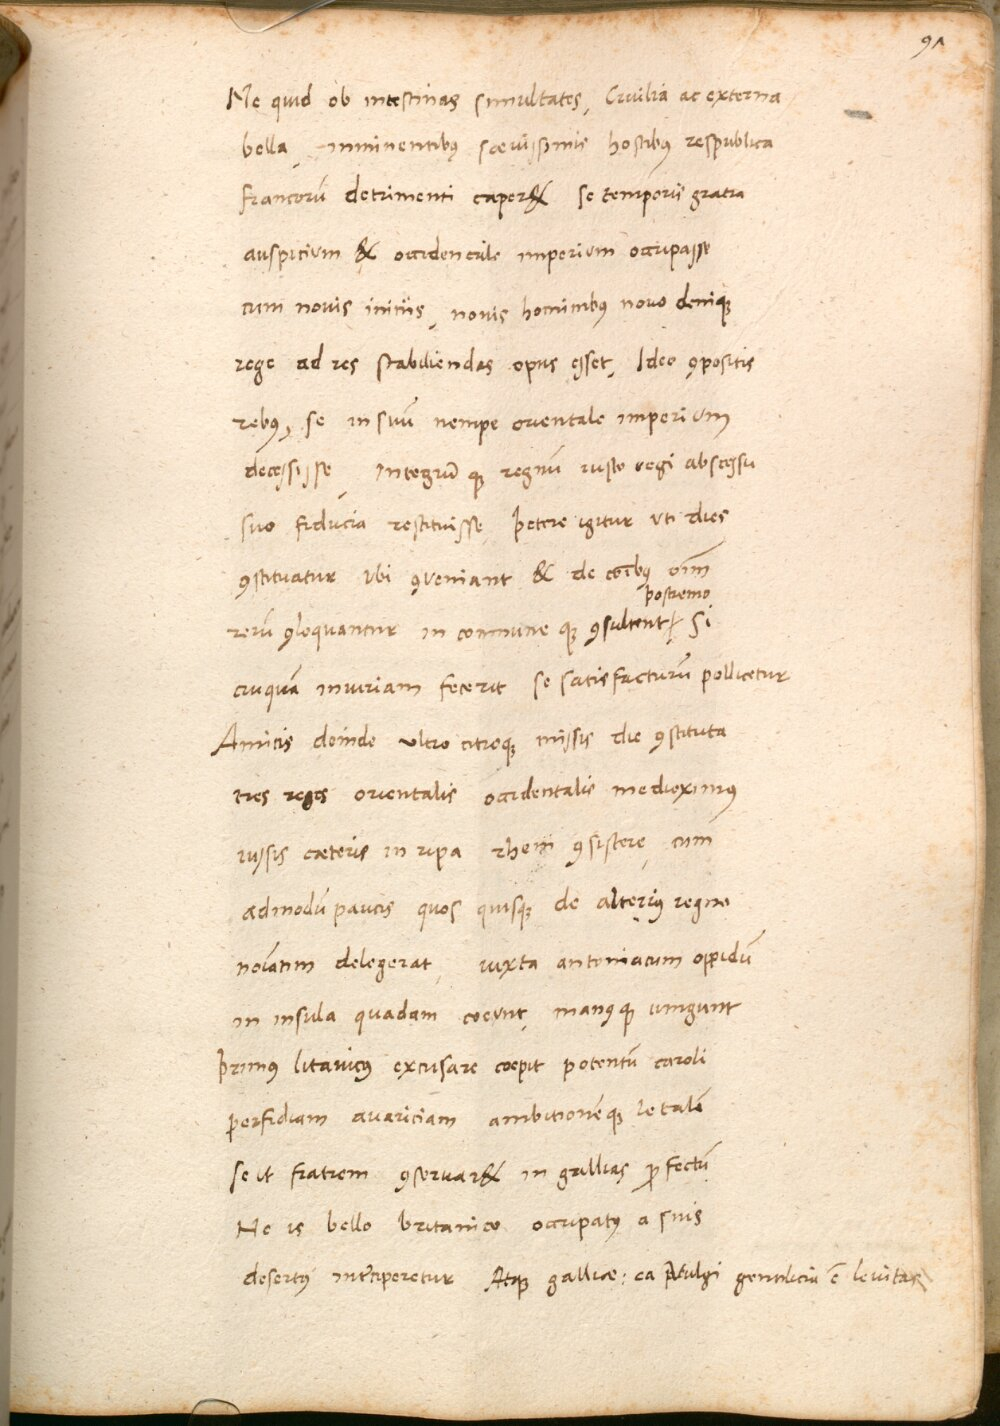 91
Ne quid ob intestinas simultates, Civilia ac externa
bella, imminentibꝰ sævissimis hostibꝰ respublica
francorū detrimenti caper& se temporis gratia
auspicium & occidentale imperium occupasse
cum novis initiis, novis hominibꝰ novo deniqꝫ
rege ad res stabiliendas opus esset, Ideo ꝯpositis
rebꝰ, se in suū nempe orientale imperium
decessisse, Integrū qꝫ regnū iusto regi abscessu
suo fiducia restituisse, petere igitur uti dies
ꝯstituatur ubi ꝯveniant & de cōībꝰ oīm
postremo
rerū ꝯloquantur in commune qꝫ ꝯsultent Si
cuiquā iniuriam fecerit se satisfacturū pollicetur
Amicis deinde ultro citroqꝫ missis die ꝯstituta
tres reges orientalis occidentalis medioximꝰ
iussis cæteris in ripa rheni ꝯsistere, cum
admodū paucis quos quisqꝫ de alteriꝰ regno
noīatim delegerat, iuxta antoniacum oppidū
in insula quadam coeunt, manꝰqꝫ iungunt
Primꝰ litavicꝰ excusare coepit potentū caroli
perfidiam avariciam ambitionēqꝫ letalē
se ut fratrem ꝯservar& in gallias ꝓfectū
Ne is bello britanico occupatꝰ a suis
desertꝰ interciperetur Atqꝫ galliæ: ea vulgi gentilicia ē levitas